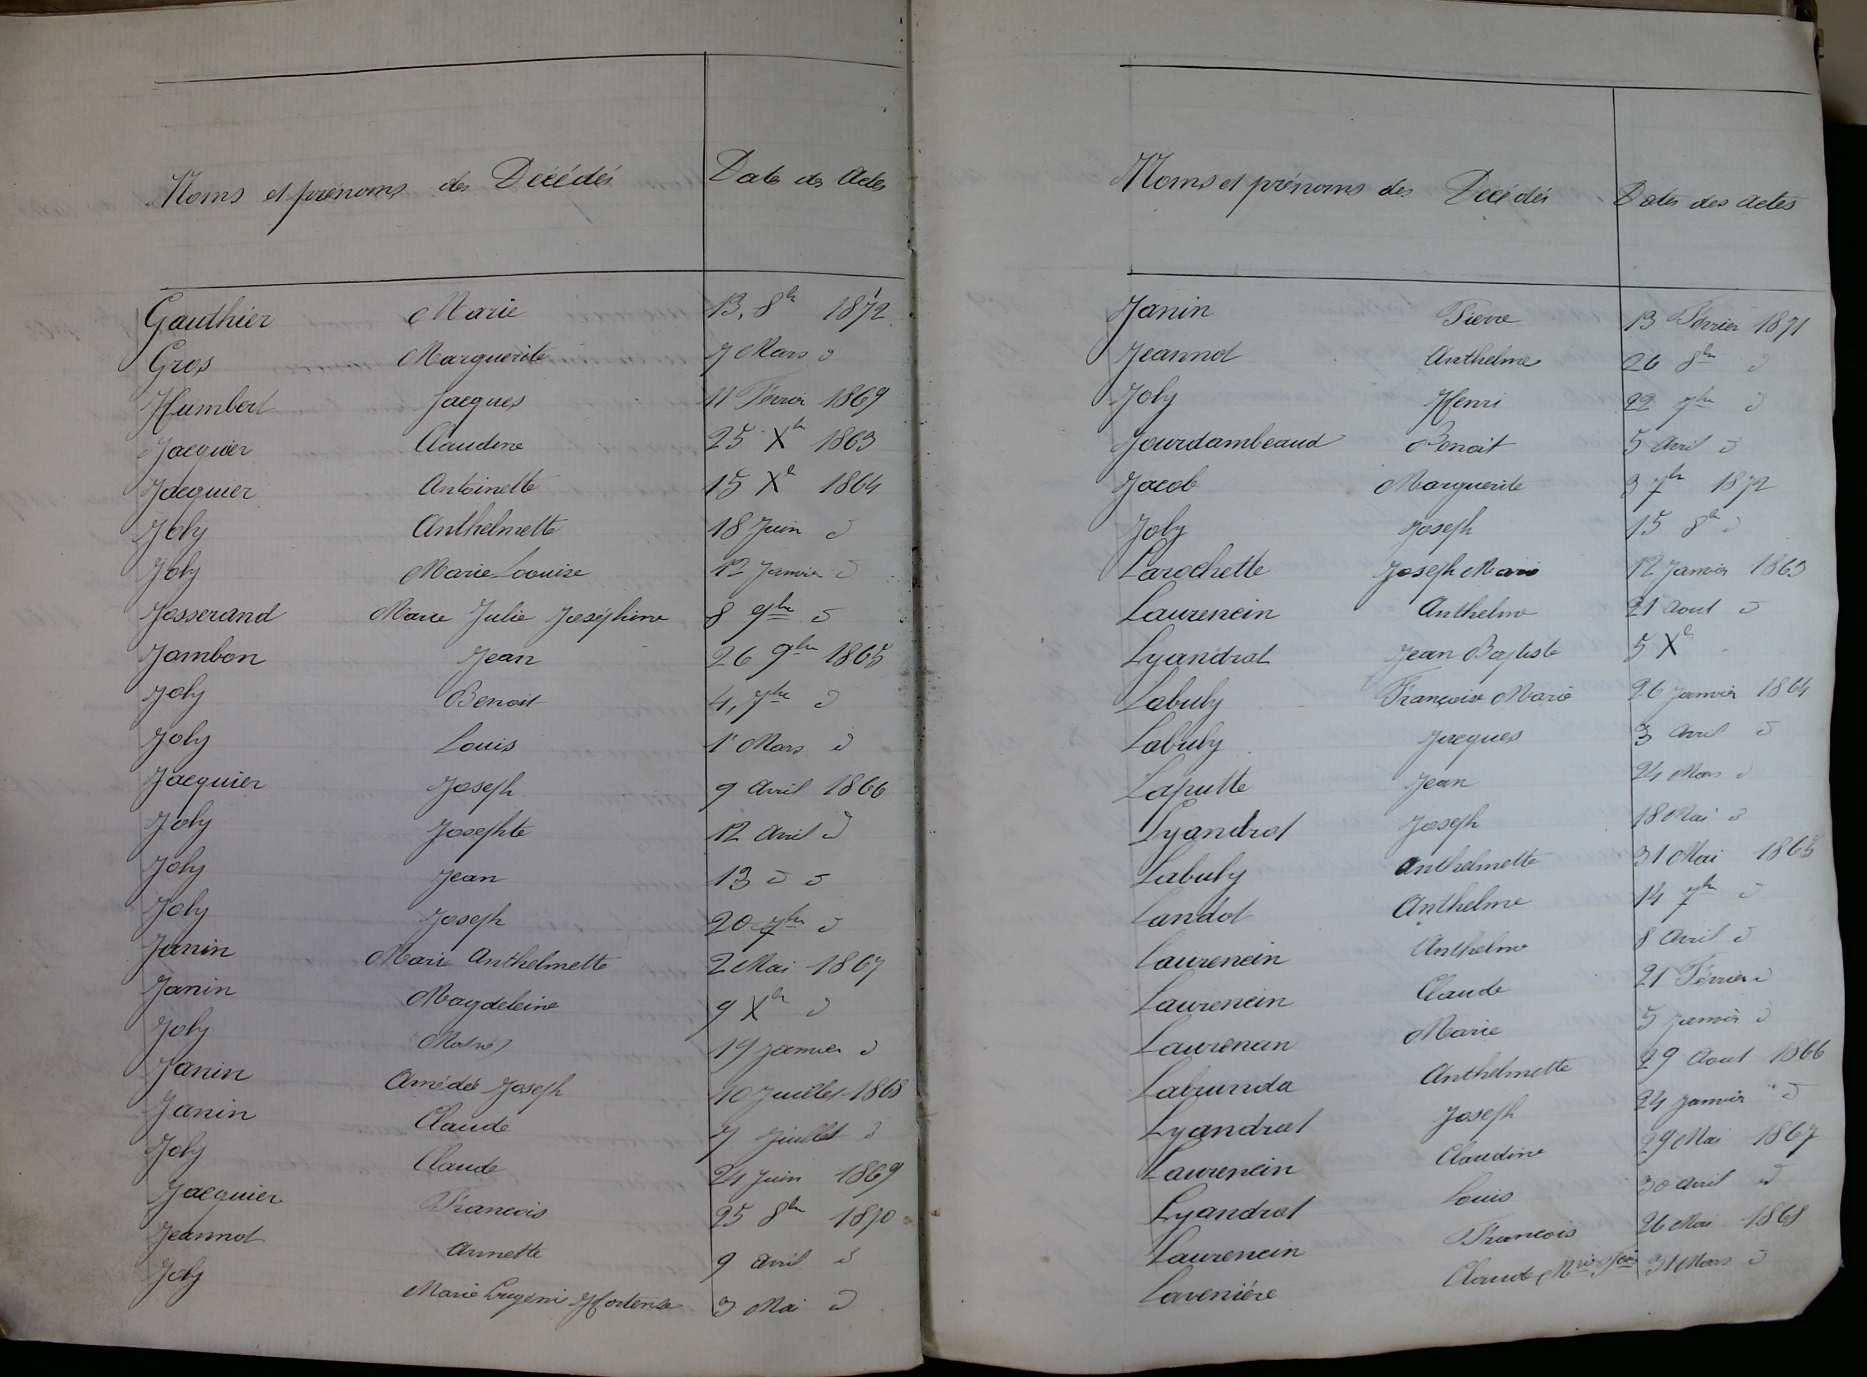 Noms et prénoms des Décédés Date des Actes
Gauthier Marie 13, 8bre 1872
Gros Marguerite 7 Mars d
Humbert Jacques 11 Février 1869
Jacquier Claudine 25 Xbre 1863
Jacquier Antoinette 15 Xbre 1864
Joly Anthelmette 18 Juin d
Joly Marie Loouise 12 Janvier d
Josserand Marie Julie Joséphine 8 9bre d
Jambon Jean 26 9bre 1865
Joly Benoit 4, 7bre d
Joly Louis 1r Mars d
Jacquier Joseph 9 Avril 1866
Joly Josephte 12 Avril d
Joly Jean 13 d d
Joly Joseph 20 7bre d
Janin Marie Anthelmette 2 Mai 1867
Janin Magdeleine 9 Xbre d
Joly 19 Janvier d
Janin Amédée Joseph 10 Juillet 1868
Janin Claude 7 Juillet d
Joly Claude 24 Juin 1869
Jacquier Francois 25 8bre 1870
Jeannot Annette 9 Avril d
Joly Marie Eugénie Hortense 3 Mai d
Noms et prénoms des Décédés Dates des actes
Janin Pierre 13 Février 1871
Jeannot Anthelme 26 8bre d
Joly Henri 22 7bre d
Jourdambeaud Benoit 5 Avril d
Jacob Marguerite 3 7bre 1872
Joly Joseph 15 8bre d
Larochette Joseph Marie 12 Janvier 1863
Laurencin Anthelme 21 Aout d
Lyandrat Jean Baptiste 5 Xbre
Labuly Françoise Marie 26 Janvier 1864
Labuly Jacques 3 Avril d
Laputte Jean 24 Mars d
Lyandrat Joseph 18 Mai d
Labuly Anthelmette 31 Mai 1865
Landot Anthelme 14 7bre d
Laurencin Anthelme 8 Avril d
Laurencin Claude 21 Février d
Laurencin Marie 5 Janvier d
Labrunda Anthelmette 29 Aout 1866
Lyandrat Joseph 24 Janvier d
Laurencin Claudine 29 Mai 1867
Lyandrat Louis 30 Avril d
Laurencin Francois 26 Mai 1868
Lavenière Claude Mrie 31 Mars d